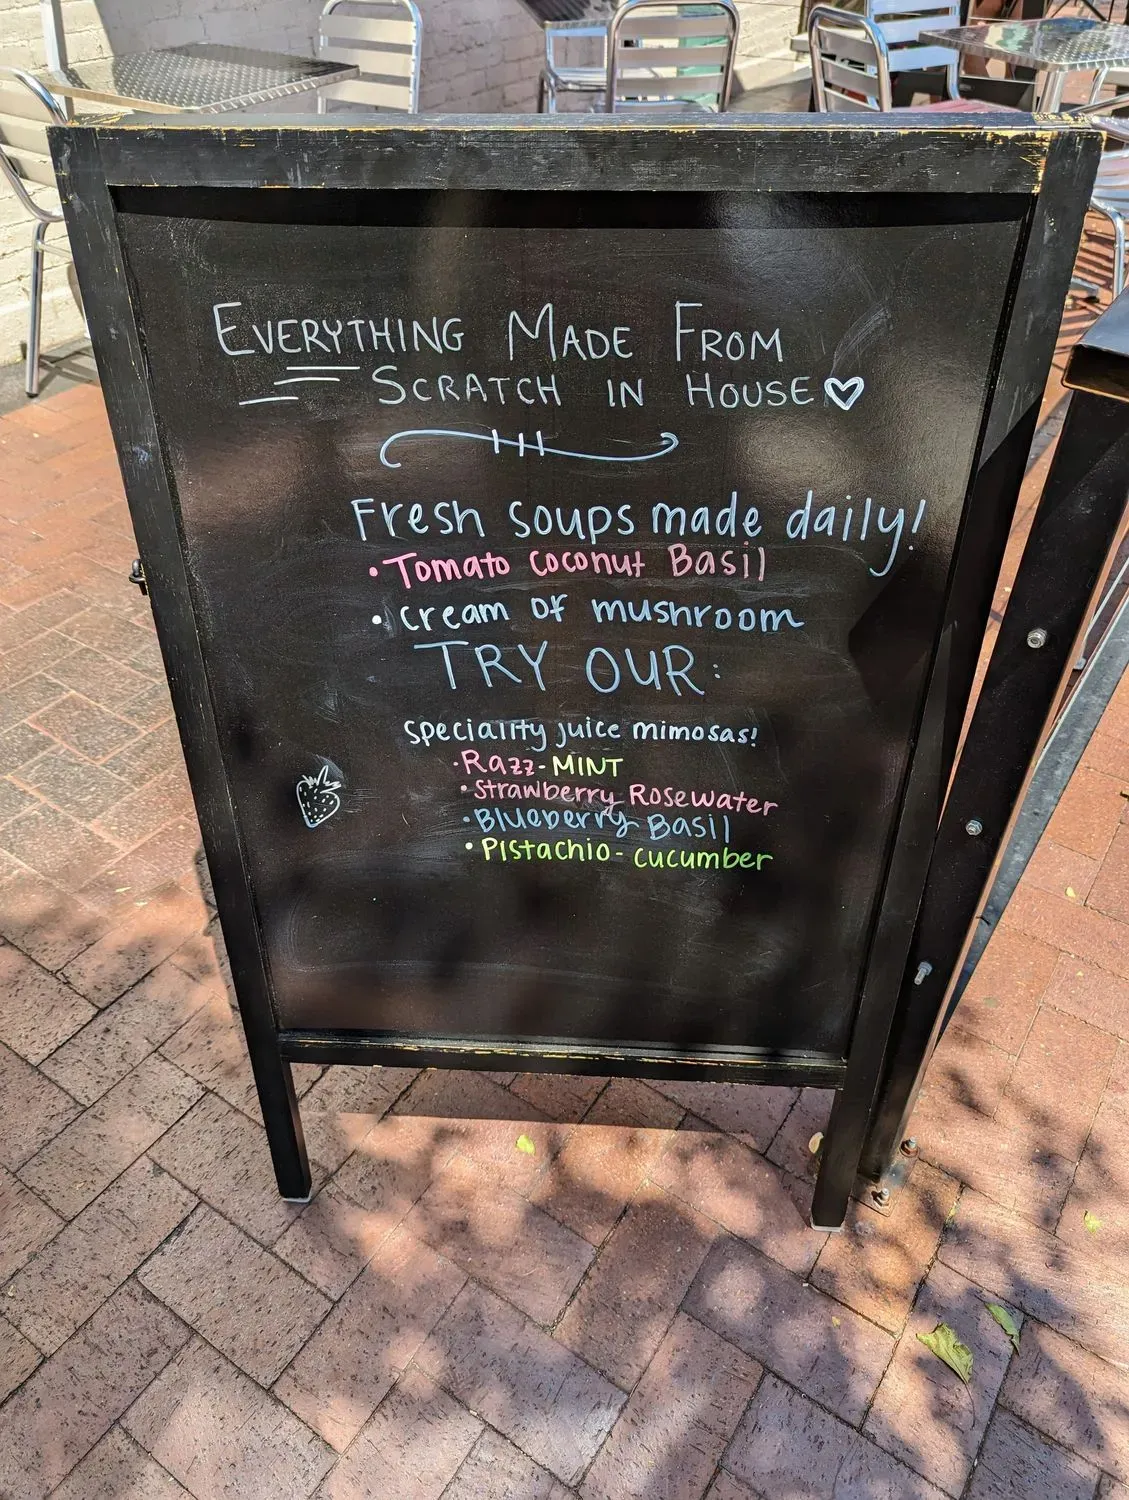 EVERYTHING MADE FROM
SCRATCH IN HOUSE♡
Fresh soups made daily!
• Tomato Coconut Basil
• cream of mushroom
TRY OUR:
speciality juice mimosas!
• Razz-MINT
• Strawberry Rosewater
• Blueberry Basil
• Pistachio-cucumber